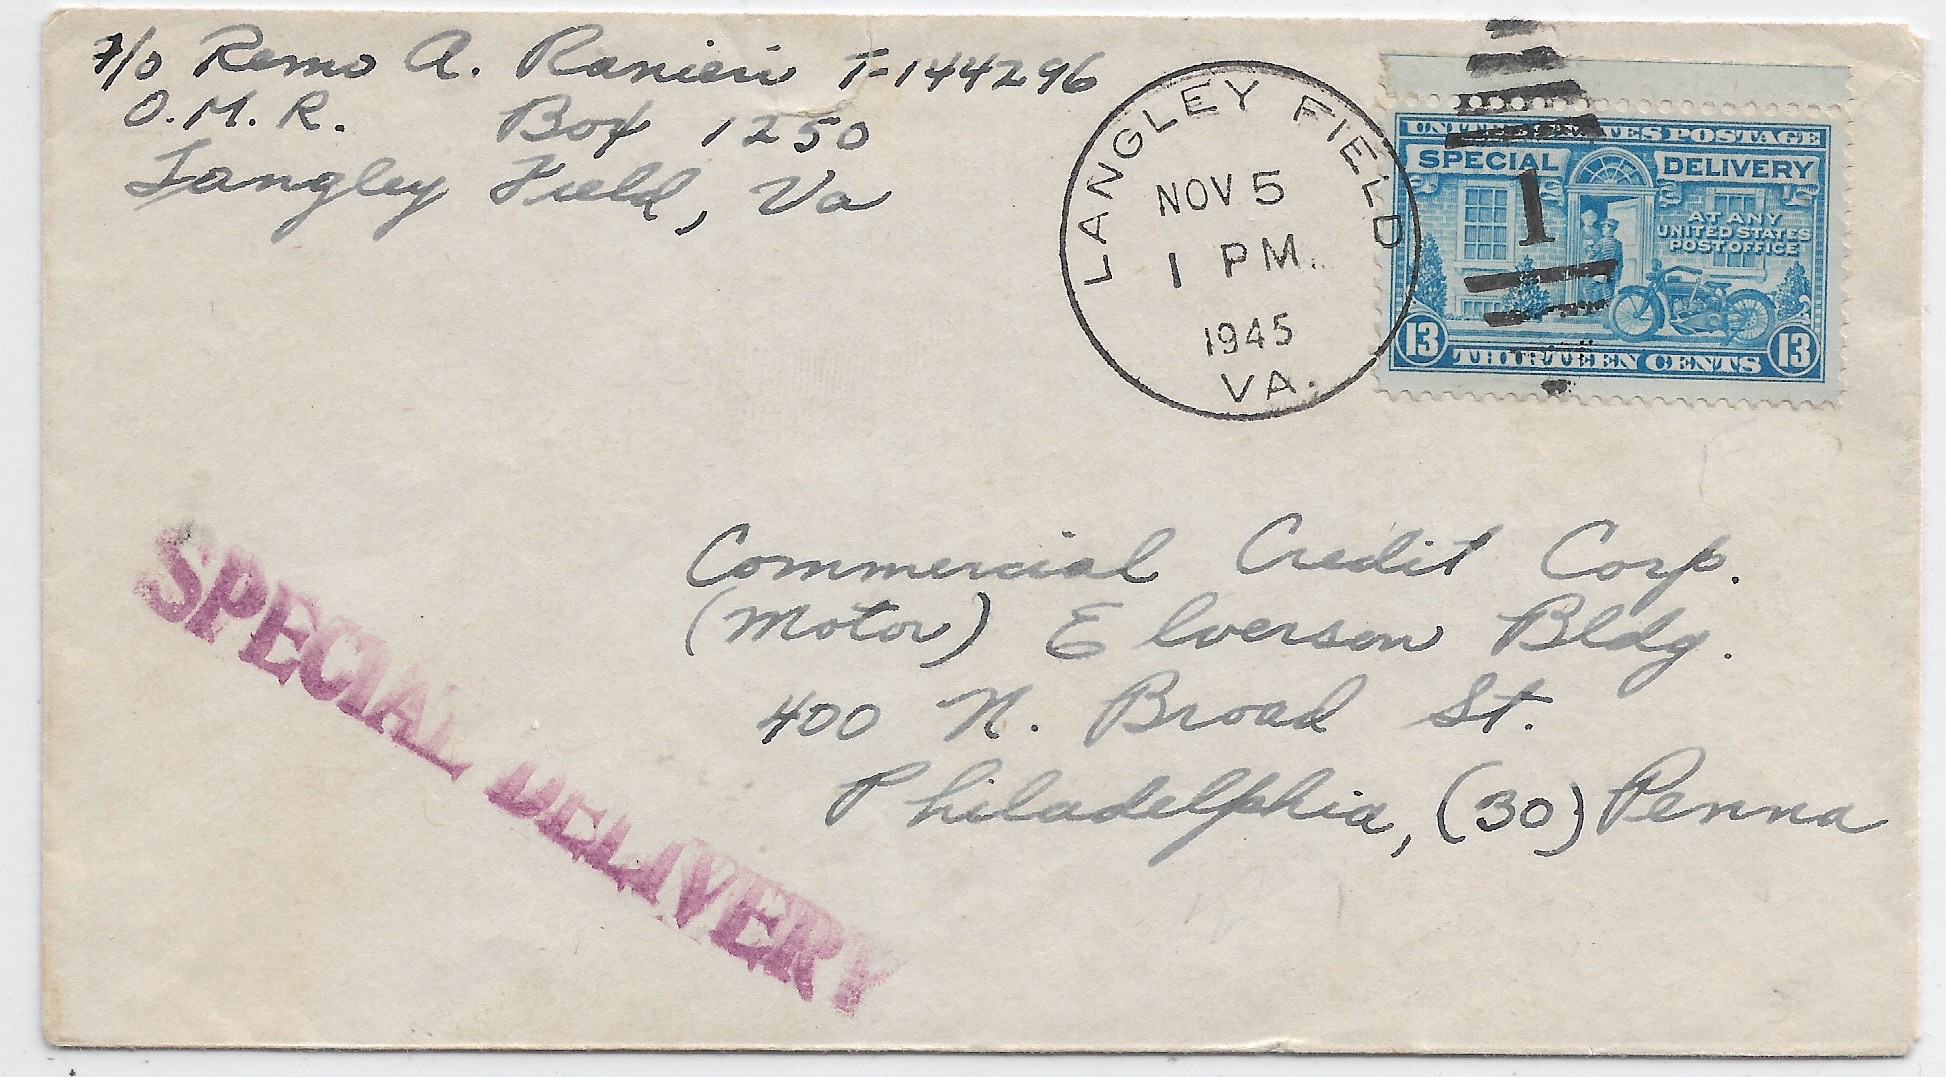 F/O Remo A. Ranieri T-144296
O.M.R. Box 1250
Langley Field, Va
LANGLEY FIELD
NOV 5
1 PM.
1945
VA.
1
UNITED STATES POSTAGE
SPECIAL DELIVERY
AT ANY
UNITED STATES
POST OFFICE
13 THIRTEEN CENTS 13
Commercial Credit Corp.
(Motor) Elverson Bldg.
400 N. Broad St.
Philadelphia, (30) Penna
SPECIAL DELIVERY